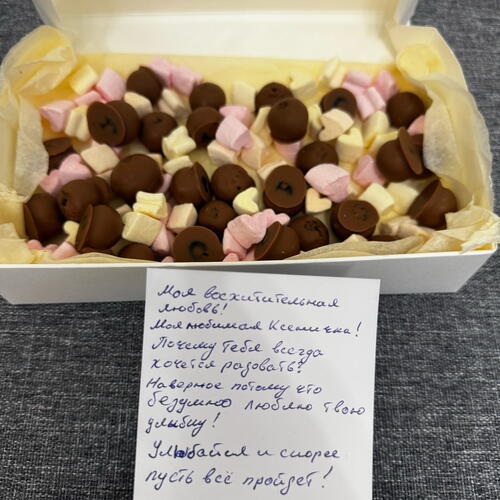 Моя восхитительная
любовь!
Моя любимая Ксеничка!
Почему тебя всегда
хочется радовать?
Наверное потому что
безумно люблю твою
улыбку!
Улыбайся и скорее
пусть всё пройдет!